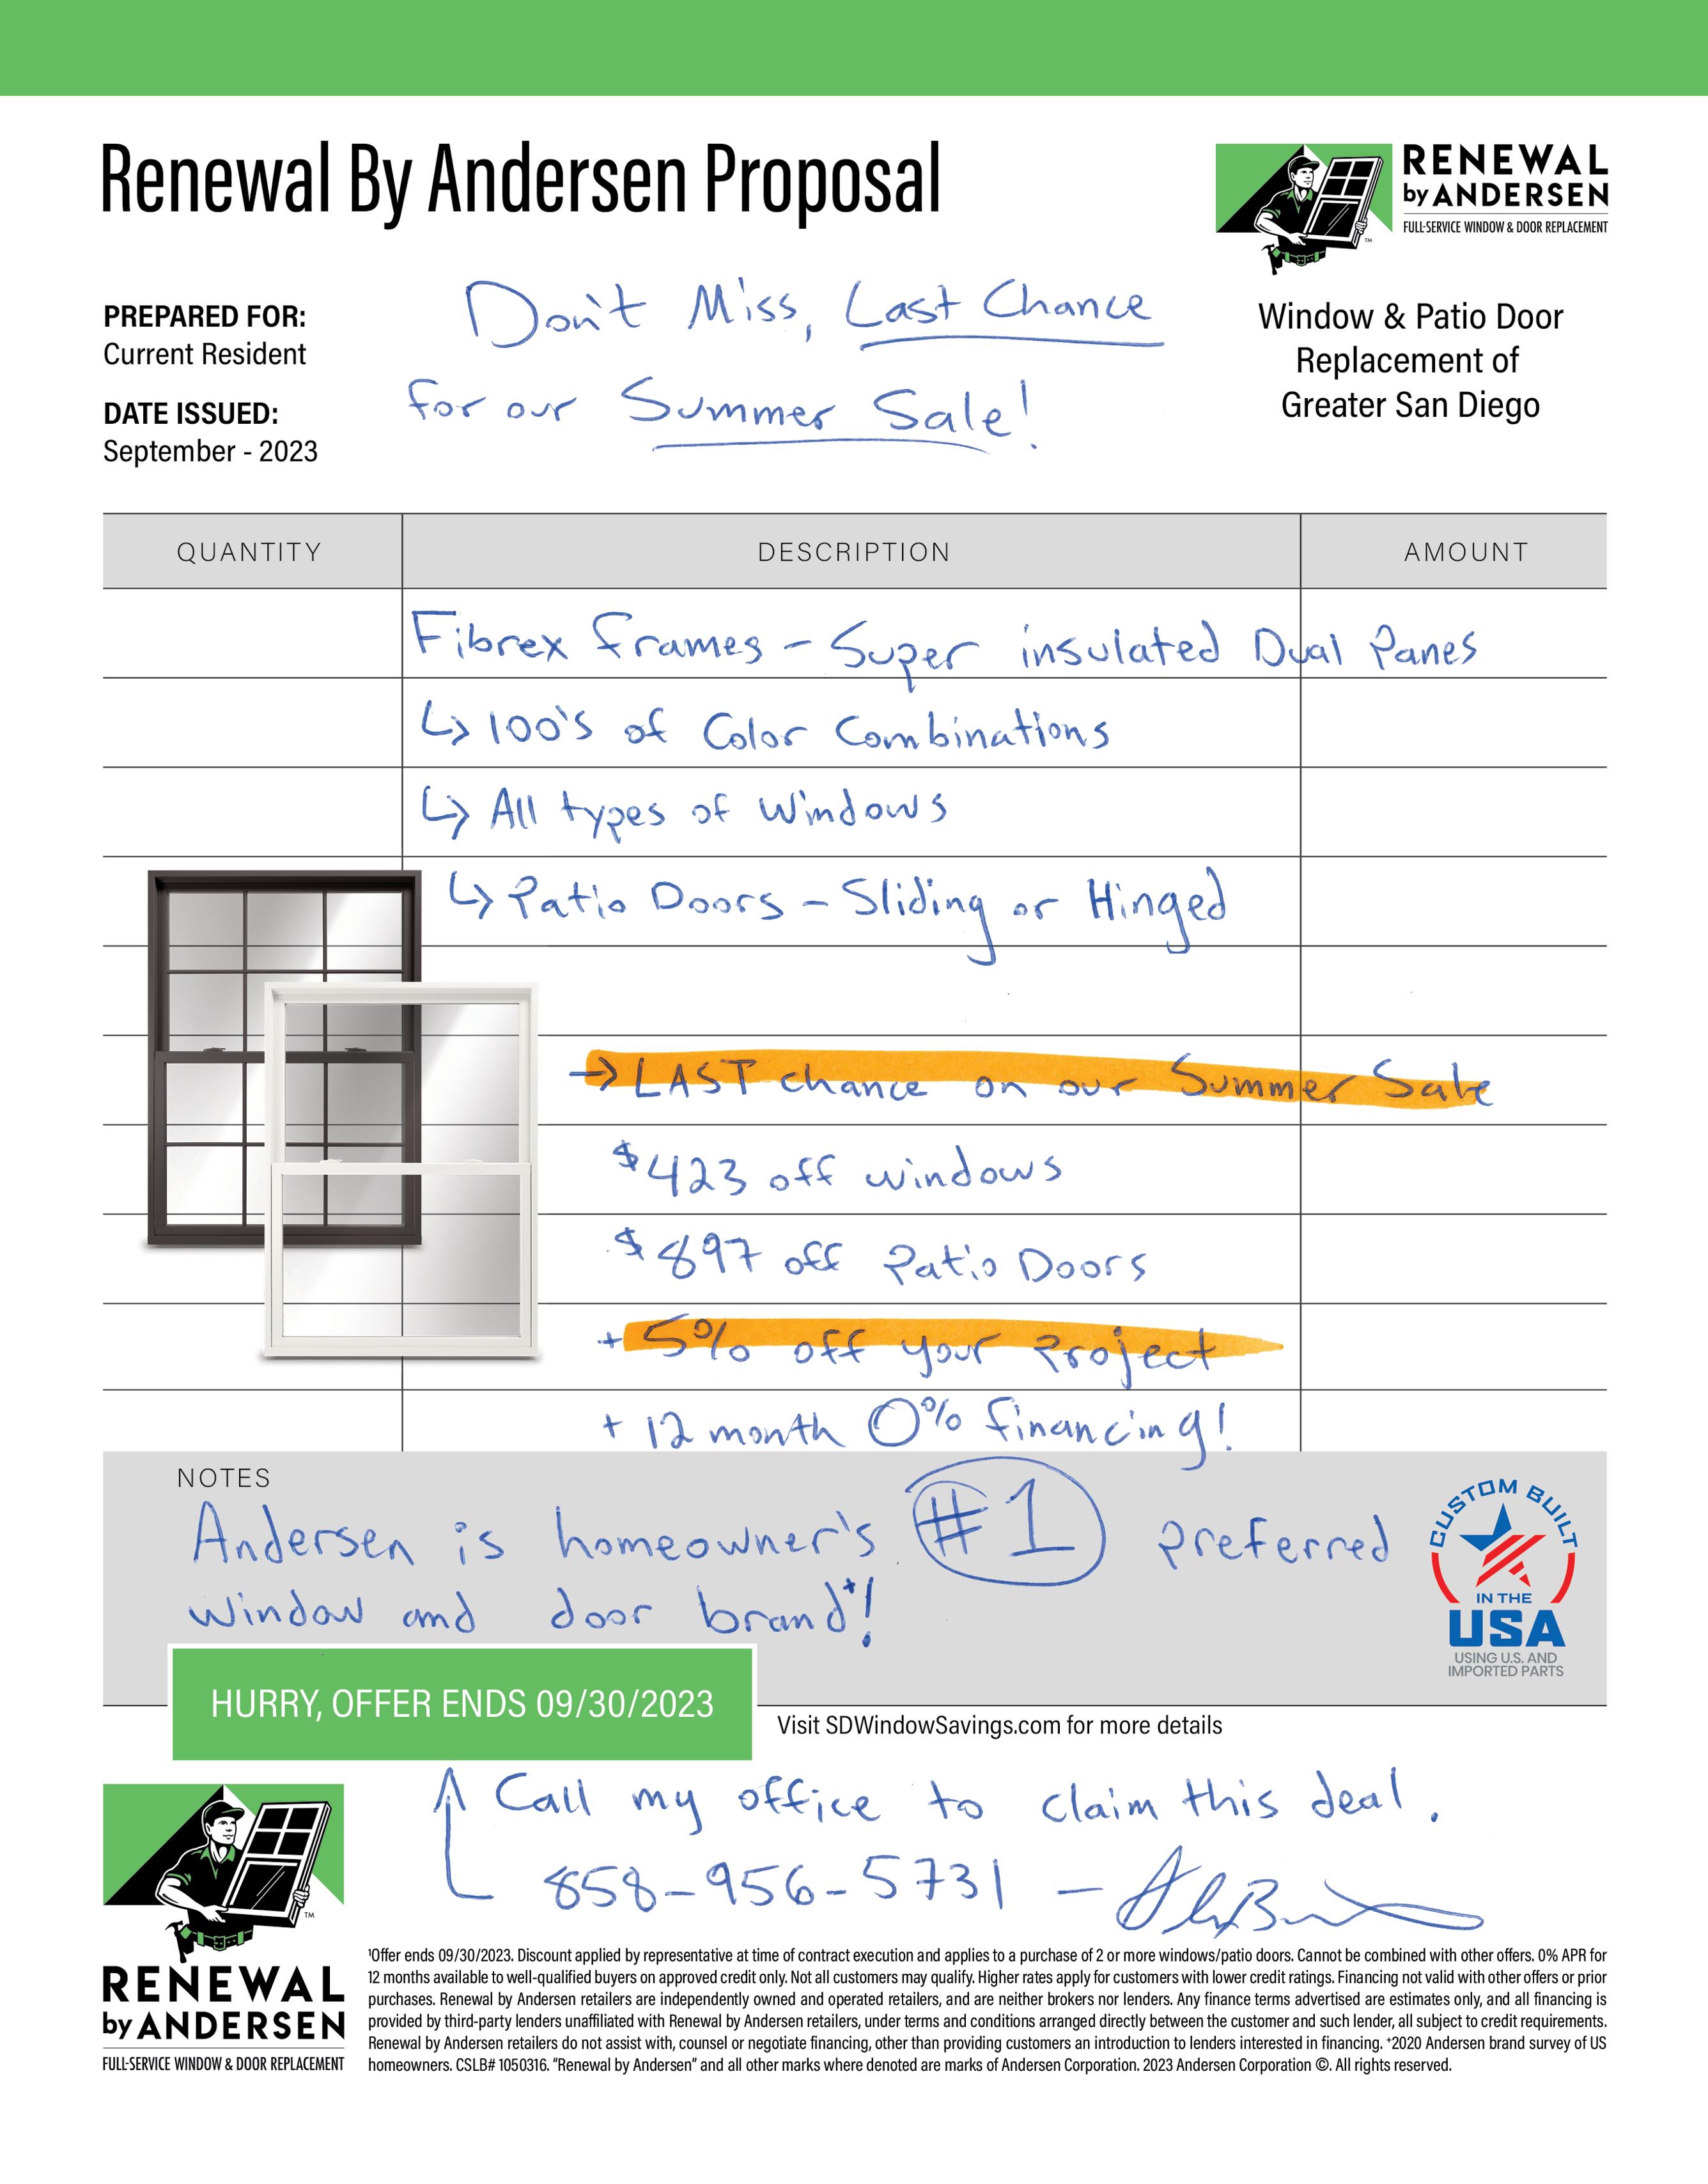 Renewal By Andersen Proposal
RENEWAL
by ANDERSEN
FULL-SERVICE WINDOW & DOOR REPLACEMENT
PREPARED FOR:
Current Resident
DATE ISSUED:
September - 2023
Don't Miss, Last Chance
for our Summer Sale!
Window & Patio Door
Replacement of
Greater San Diego
QUANTITY DESCRIPTION AMOUNT
Fibrex frames - Super insulated Dual Panes
↳ 100's of Color Combinations
↳ All types of Windows
↳ Patio Doors - Sliding or Hinged
→ LAST chance on our Summer Sale
$423 off windows
$897 off Patio Doors
+ 5% off your Project
+ 12 month 0% financing!
NOTES
Andersen is homeowner's #1 preferred
window and door brand⁺!
CUSTOM BUILT
IN THE
USA
USING U.S. AND
IMPORTED PARTS
HURRY, OFFER ENDS 09/30/2023
Visit SDWindowSavings.com for more details
Call my office to claim this deal.
858-956-5731 -
RENEWAL
by ANDERSEN
FULL-SERVICE WINDOW & DOOR REPLACEMENT
¹Offer ends 09/30/2023. Discount applied by representative at time of contract execution and applies to a purchase of 2 or more windows/patio doors. Cannot be combined with other offers. 0% APR for
12 months available to well-qualified buyers on approved credit only. Not all customers may qualify. Higher rates apply for customers with lower credit ratings. Financing not valid with other offers or prior
purchases. Renewal by Andersen retailers are independently owned and operated retailers, and are neither brokers nor lenders. Any finance terms advertised are estimates only, and all financing is
provided by third-party lenders unaffiliated with Renewal by Andersen retailers, under terms and conditions arranged directly between the customer and such lender, all subject to credit requirements.
Renewal by Andersen retailers do not assist with, counsel or negotiate financing, other than providing customers an introduction to lenders interested in financing. ⁺2020 Andersen brand survey of US
homeowners. CSLB# 1050316. "Renewal by Andersen" and all other marks where denoted are marks of Andersen Corporation. 2023 Andersen Corporation ©. All rights reserved.